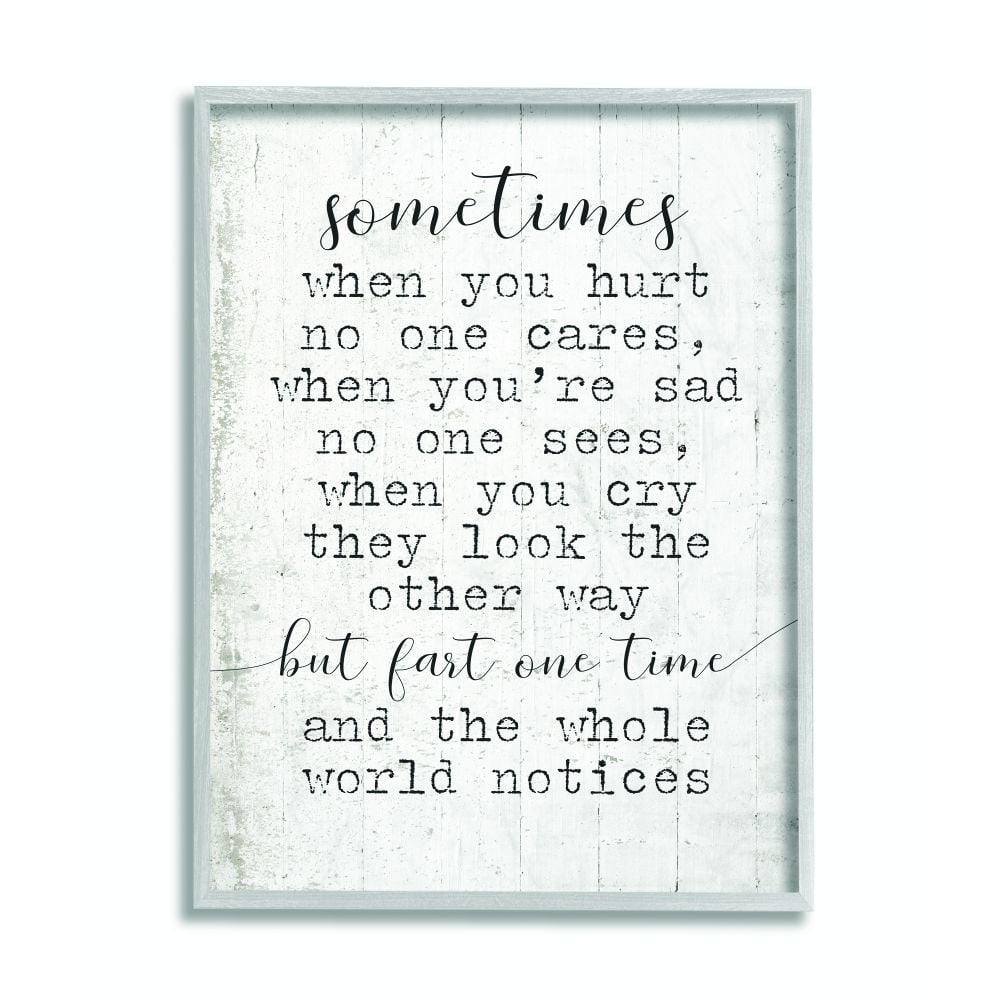 sometimes
when you hurt
no one cares,
when you're sad
no one sees,
when you cry
they look the
other way
but fart one time
and the whole
world notices